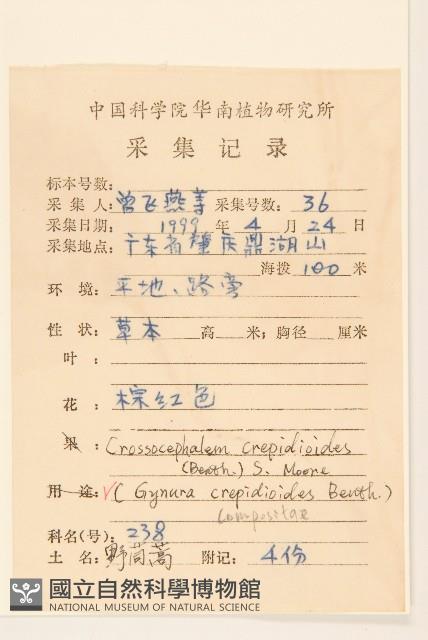 中国科学院华南植物研究所
采集记录
标本号数:
采集人: 曾飞燕等 采集号数: 36
采集日期: 1999 年 4 月 24 日
采集地点: 广东省肇庆鼎湖山
海拨 100 米
环境: 平地、路旁
性状: 草本 高 米; 胸径 厘米
叶:
花: 棕红色
果: Crossocephalem crepidioides
(Benth.) S. Moore
用途: ✓( Gynura crepidioides Benth.)
Compositae
科名(号): 238
土名: 野茼蒿 附记: 4份
國立自然科學博物館
NATIONAL MUSEUM OF NATURAL SCIENCE